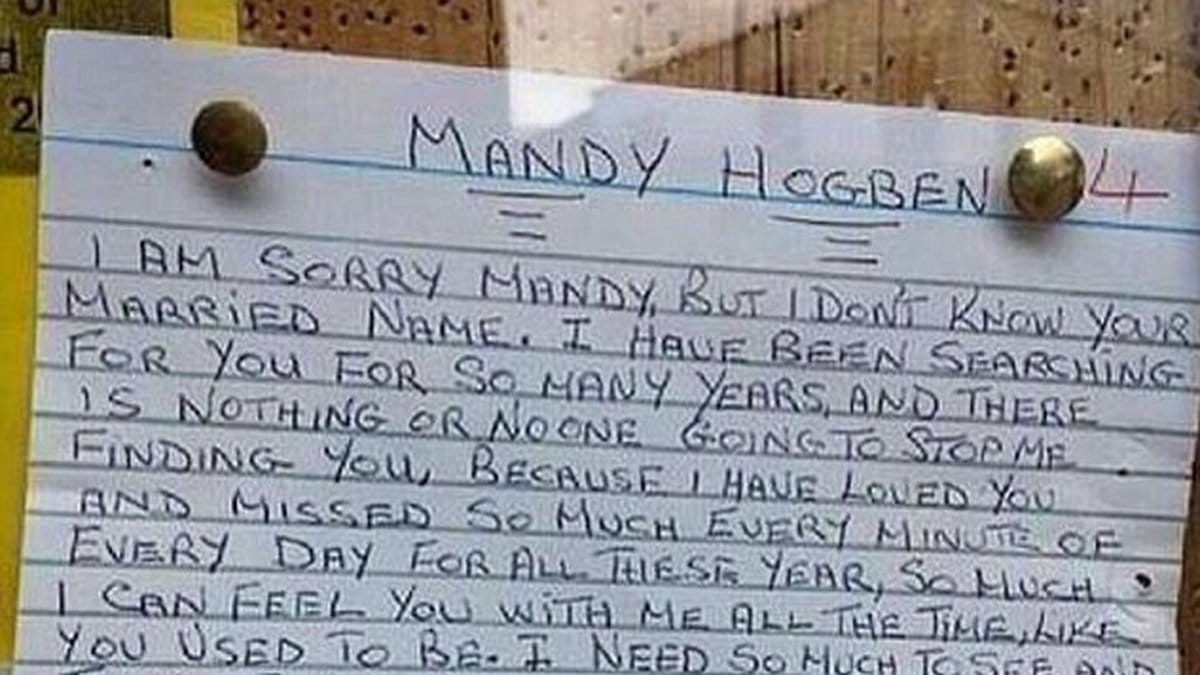 2
MANDY HOGBEN 4
I AM SORRY MANDY, BUT I DON'T KNOW YOUR
MARRIED NAME. I HAVE BEEN SEARCHING
FOR YOU FOR SO MANY YEARS, AND THERE
IS NOTHING OR NO ONE GOING TO STOP ME
FINDING YOU, BECAUSE I HAVE LOVED YOU
AND MISSED SO MUCH EVERY MINUTE OF
EVERY DAY FOR ALL THESE YEAR, SO MUCH
I CAN FEEL YOU WITH ME ALL THE TIME, LIKE
YOU USED TO BE. I NEED SO MUCH TO SEE AND